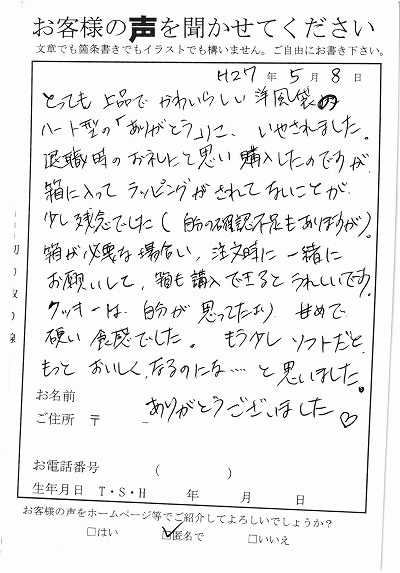 お客様の声を聞かせてください
文章でも箇条書きでもイラストでも構いません。ご自由にお書き下さい。
H27 年 5 月 8 日
とっても 上品で かわいらしい 洋風袋の
ハート型の「ありがとう」に、いやされました。
退職時のお礼にと思い購入したのですが、
箱に入って ラッピングがされてないことが
少し残念でした(自分の確認不足もありますが)。
箱が必要な場合い、注文時に一緒に
お願いして、箱も購入できるとうれしいです。
クッキーは、自分が思ってたより 甘めで
硬い食感でした。 もう少し ソフトだと、
もっと おいしくなるのにな‥‥と思いました。
お名前
ありがとうございました♡
ご住所 〒 －
お電話番号 ( )
生年月日 T・S・H 年 月 日
お客様の声をホームページ等でご紹介してよろしいでしょうか?
□はい ☑匿名で □いいえ
切り取り線